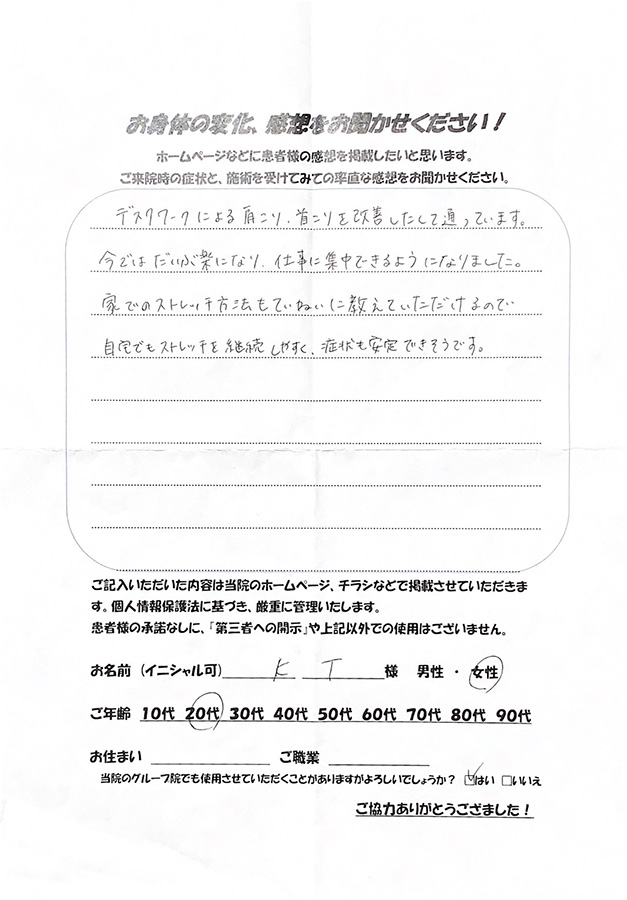 お身体の変化、感想をお聞かせください!
ホームページなどに患者様の感想を掲載したいと思います。
ご来院時の症状と、施術を受けてみての率直な感想をお聞かせください。
デスクワークによる肩こり、首こりを改善したくて通っています。
今ではだいぶ楽になり、仕事に集中できるようになりました。
家でのストレッチ方法もていねいに教えていただけるので
自宅でもストレッチを継続しやすく、症状も安定できそうです。
ご記入いただいた内容は当院のホームページ、チラシなどで掲載させていただきま
す。個人情報保護法に基づき、厳重に管理いたします。
患者様の承諾なしに、「第三者への開示」や上記以外での使用はございません。
お名前(イニシャル可) K T 様 男性 ・ 女性
ご年齢 10代 20代 30代 40代 50代 60代 70代 80代 90代
お住まい ご職業
当院のグループ院でも使用させていただくことがありますがよろしいでしょうか? ☑はい □いいえ
ご協力ありがとうござました!